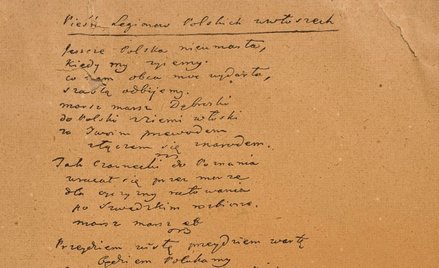 Pieśń Legionow Polskich wewłoszech
Jeszcze Polska nieumarła,
Kiedy my zyiemy.
co nam obca moc wydarła,
szablą odbijemy.
marsz marsz Dąbroski
do Polski zziemi włoski
za Twoim przewodem
złączem się znarodem.
Jak Czarnecki do Poznania
wracał się przez morze
dla oyczyzny ratowania
po Szwedzkim rozbiorze.
marsz marsz etc
Przeydziem wisłę przeydziem wartę
będziem Polakamy